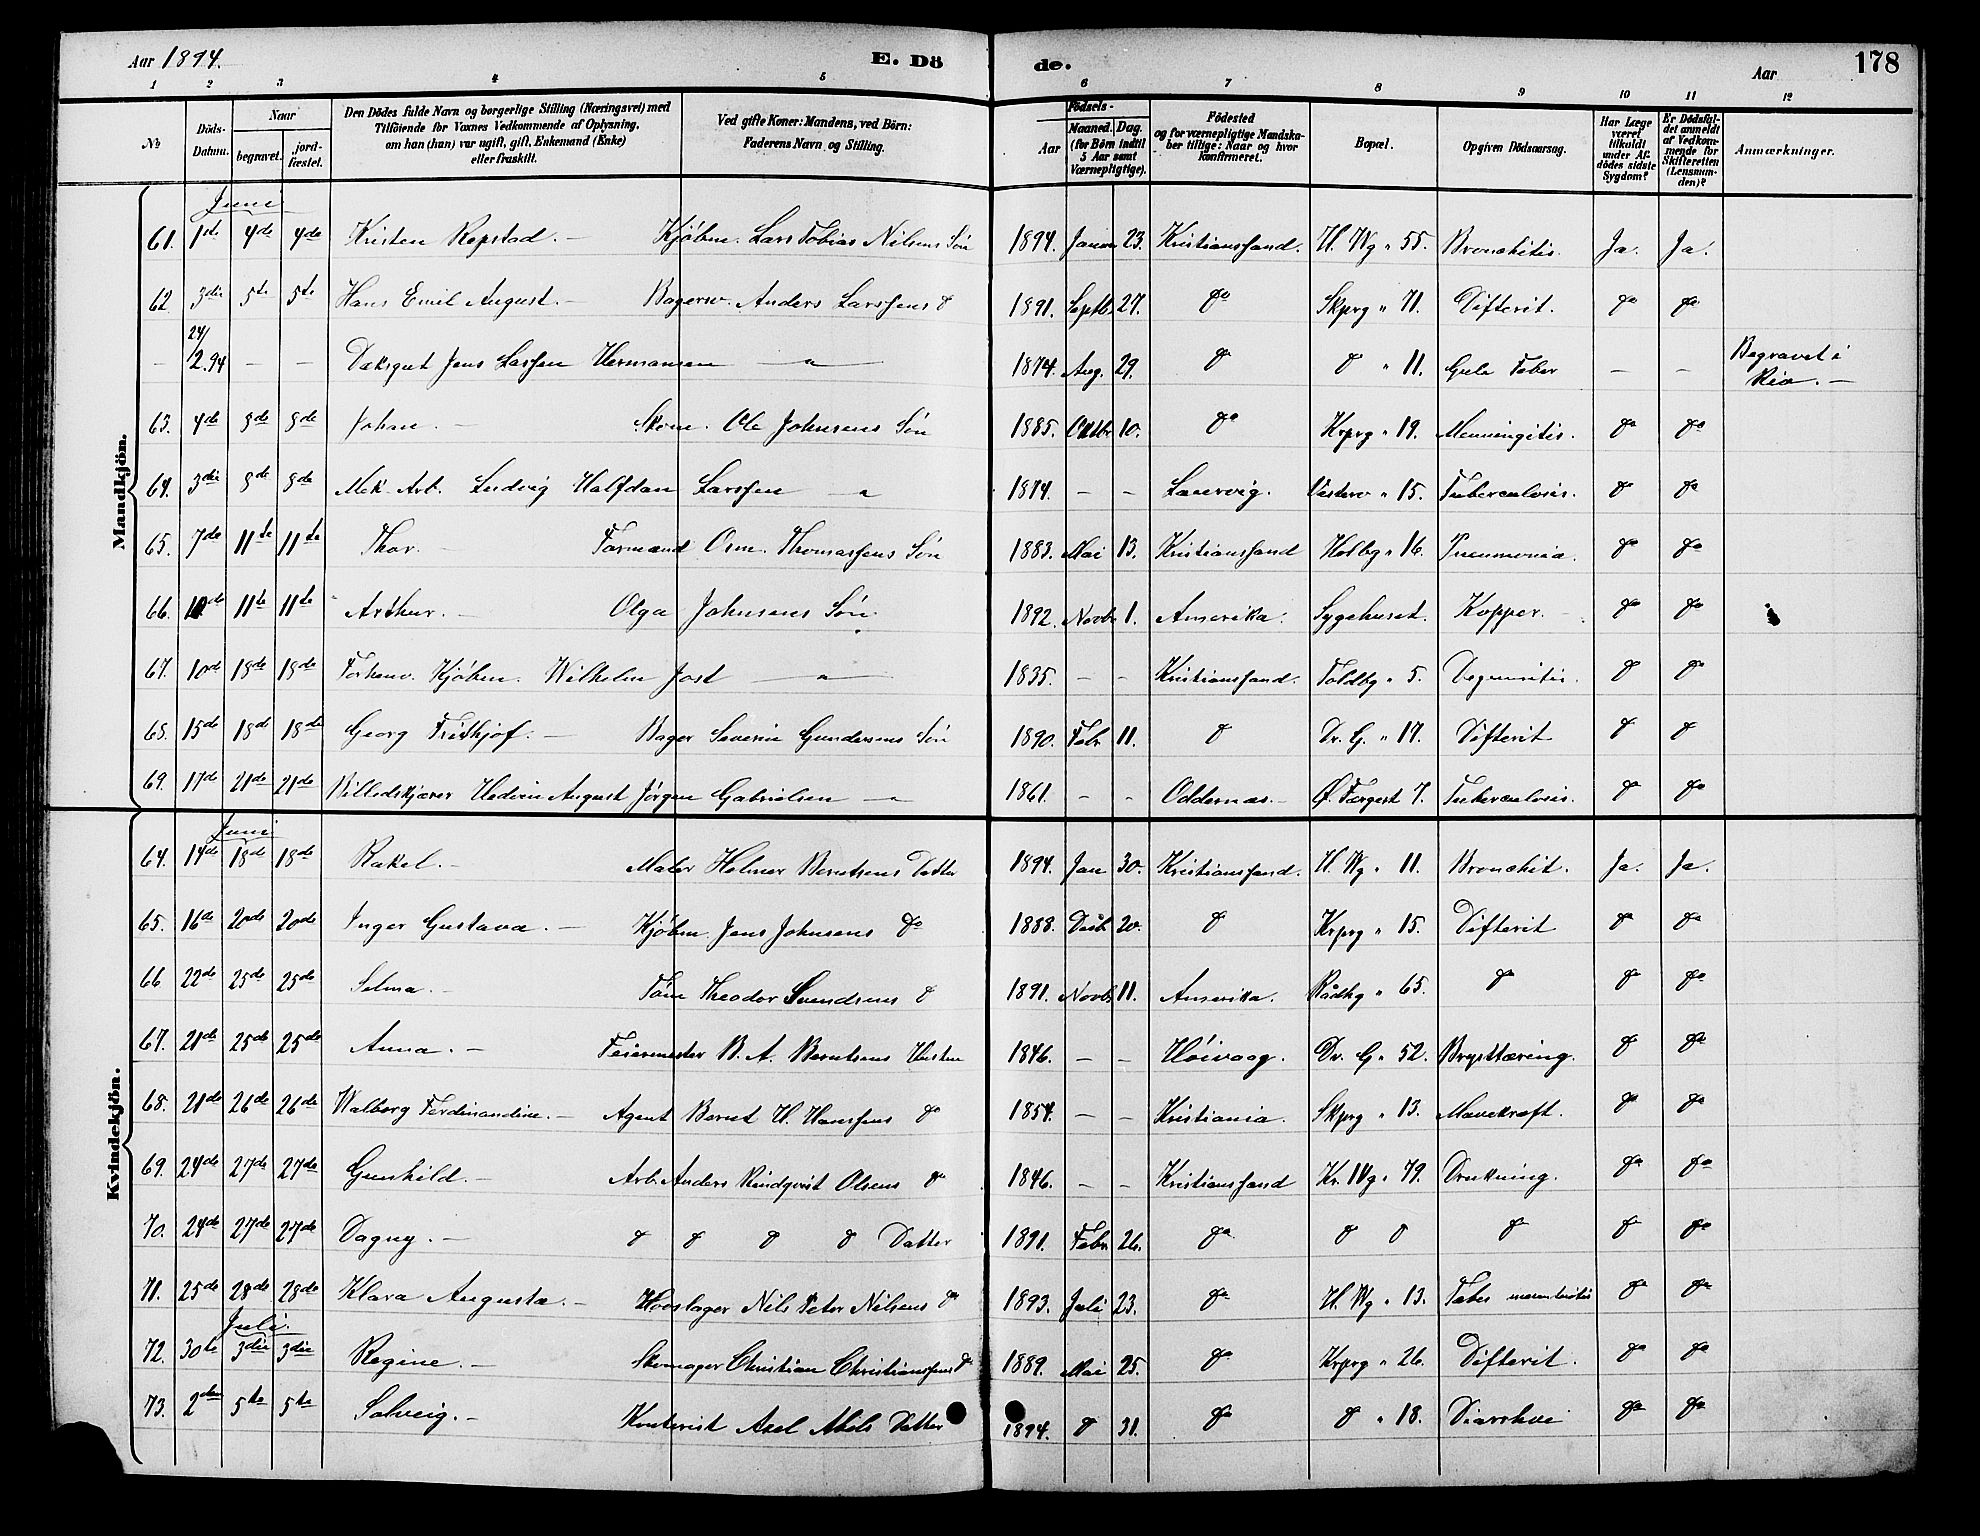 Aar 1894. E. Dö de. Aar 178
1 2 3 4 5 6 7 8 9 10 11 12
№ Döds-Datum. Naar begravet. jordfæstet. Den Dödes fulde Navn og borgerlige Stilling (Næringsvei) med Tilföiende for Voxnes Vedkommende af Oplysning, om han (hun) var ugift, gift, Enkemand (Enke) eller fraskilt. Ved gifte Koner: Mandens, ved Börn: Faderens Navn og Stilling. Födsels- Aar Maaned. Dag. (for Börn indtil 5 Aar samt Værnepligtige). Födested og for værnepligtige Mandskaber tillige: Naar og hvor konfirmeret. Bopæl. Opgiven Dödsaarsag. Har Læge været tilkaldt under Afdödes sidste Sygdom? Er Dödsfaldet anmeldt af Vedkommende for Skifteretten (Lensmanden)? Anmærkninger.
Mandkjön.
Juni
61. 1ste 4de 4de Kristen Repstad. — Kjöbm. Lars Tobias Nilsens Sön 1894. Januar 23. Kristianssand. H. Wg " 55. Bronchitis. Ja. Ja.
62 3die 5te 5te Hans Emil August. — Bagersv. Anders Larssens do 1891. Septb. 27. do Skprg " 71. Difterit. do do
— 24/2.94 — — Dæksgut Jens Larssen Hermansen — " — 1874. Aug. 29. do do " 11. Gule Feber — — Begravet i Rio. —
63. 4de 8de 8de Johan. — Skom. Ole Johnsens Sön 1885. Octbr 10. do Krprg " 19. Menningitis. do do
64. 3die 8de 8de Mek. Arb. Ludvig Halfdan Larssen — " 1874. — — Laurvig. Vesterv " 15. Tuberculosis. do do
65. 7de 11te 11te Thor. — Formand Orm. Thomassens Sön 1883. Mai 13. Kristianssand Holbg " 16. Pneumonia. do do
66. 10de 11te 11te Arthur. — Olga Johnsens Sön 1892. Novbr 1. Amerika. Sygehuset. Kopper. do do
67. 10de 18de 18de Forhenv. Kjöbm. Wilhelm Jost — " — 1835. — — Kristianssand. Toldbg " 5. do do
68. 15de 18de 18de Georg Frithjof. — Bager Severin Gundersens Sön 1890. Febr 11. do Dr. G. " 17. Difterit do do
69. 17de 21de 21de Billedskjærer Hedevin August Jörgen Gabrielsen — " 1861. — — Oddernæs. — Ø. Færgest 7. Tuberculosis. do do
Kvindekjön.
Juni
64. 14de 18de 18de Rakel. — Maler Helmer Berntsens Datter 1894. Jan 30. Kristianssand. H. Wg " 11. Bronchit. Ja. Ja.
65. 16de 20de 20de Inger Gustava. — Kjöbm. Jens Johnsens do 1888. Decb 20. do Krprg " 15. Difterit do do
66 22de 25de 25de Selma. — Töm Theodor Svendsens do 1891. Novbr 11. Amerika. Rådhg " 65. do do do
67. 21de 25de 25de Anna. — Feiermester B. A. Berntsens Husten 1846. — — Höivaag. Dr. G " 52. Brysttæring. do do
68. 21de 26de 26de Walborg Ferdinandine. — Agent Bernt H. Hanssens do 1854. — — Kristiania. Skprg " 13. Mavekræft. do do
69. 24de 27de 27de Gunhild. — Arb. Anders Rindqvist Olsens do 1846. — — Kristianssand Kr. IVg " 79. Drukning. do do
70. 24de 27de 27de Dagny. — do do do do Datter 1891. Febr 26. do do do do do do
71. 25de 28de 28de Klara Augusta. — Hovslager Nils Peter Nilsens do 1893. Juli 23. do H. Wg " 13. Tabes do do
Juli.
72. 30te 3die 3die Regine. — Skomager Christian Christianssens do 1889. Mai 25. do Krprg " 26. Difterit. do do
73. 2den 5te 5te Solveig. — Kontorist Axel Abels Datter 1894. do 31. do do " 18. Diarrhoe do do